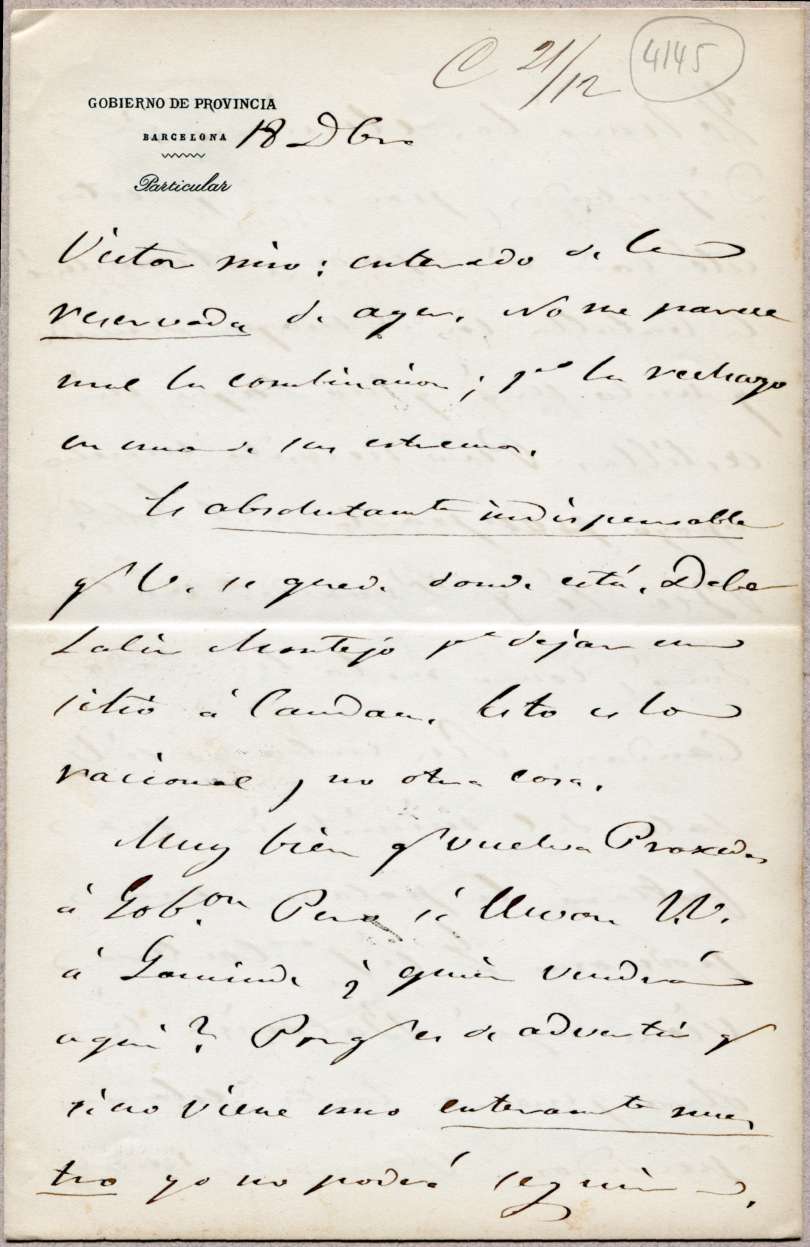 C 21/12
4145
GOBIERNO DE PROVINCIA
BARCELONA
18 Dbre
Particular
Victor mio: enterado de la
reservada de ayer. No me parece
mal la combinacion; pº la rechazo
en uno de sus estremos.
Es absolutamte indispensable
q V. se quede donde está. Debe
salir Montejo pª dejar un
sitio á Candau. Esto es lo
racional y no otra cosa.
Muy bien q vuelva Praxedes
á Gobon. Pero si llevan VV.
á Gaminde ¿ quien vendrá
aqui? Porq es de advertir q
si no viene uno enteramte nues
tro yo no podré seguir.